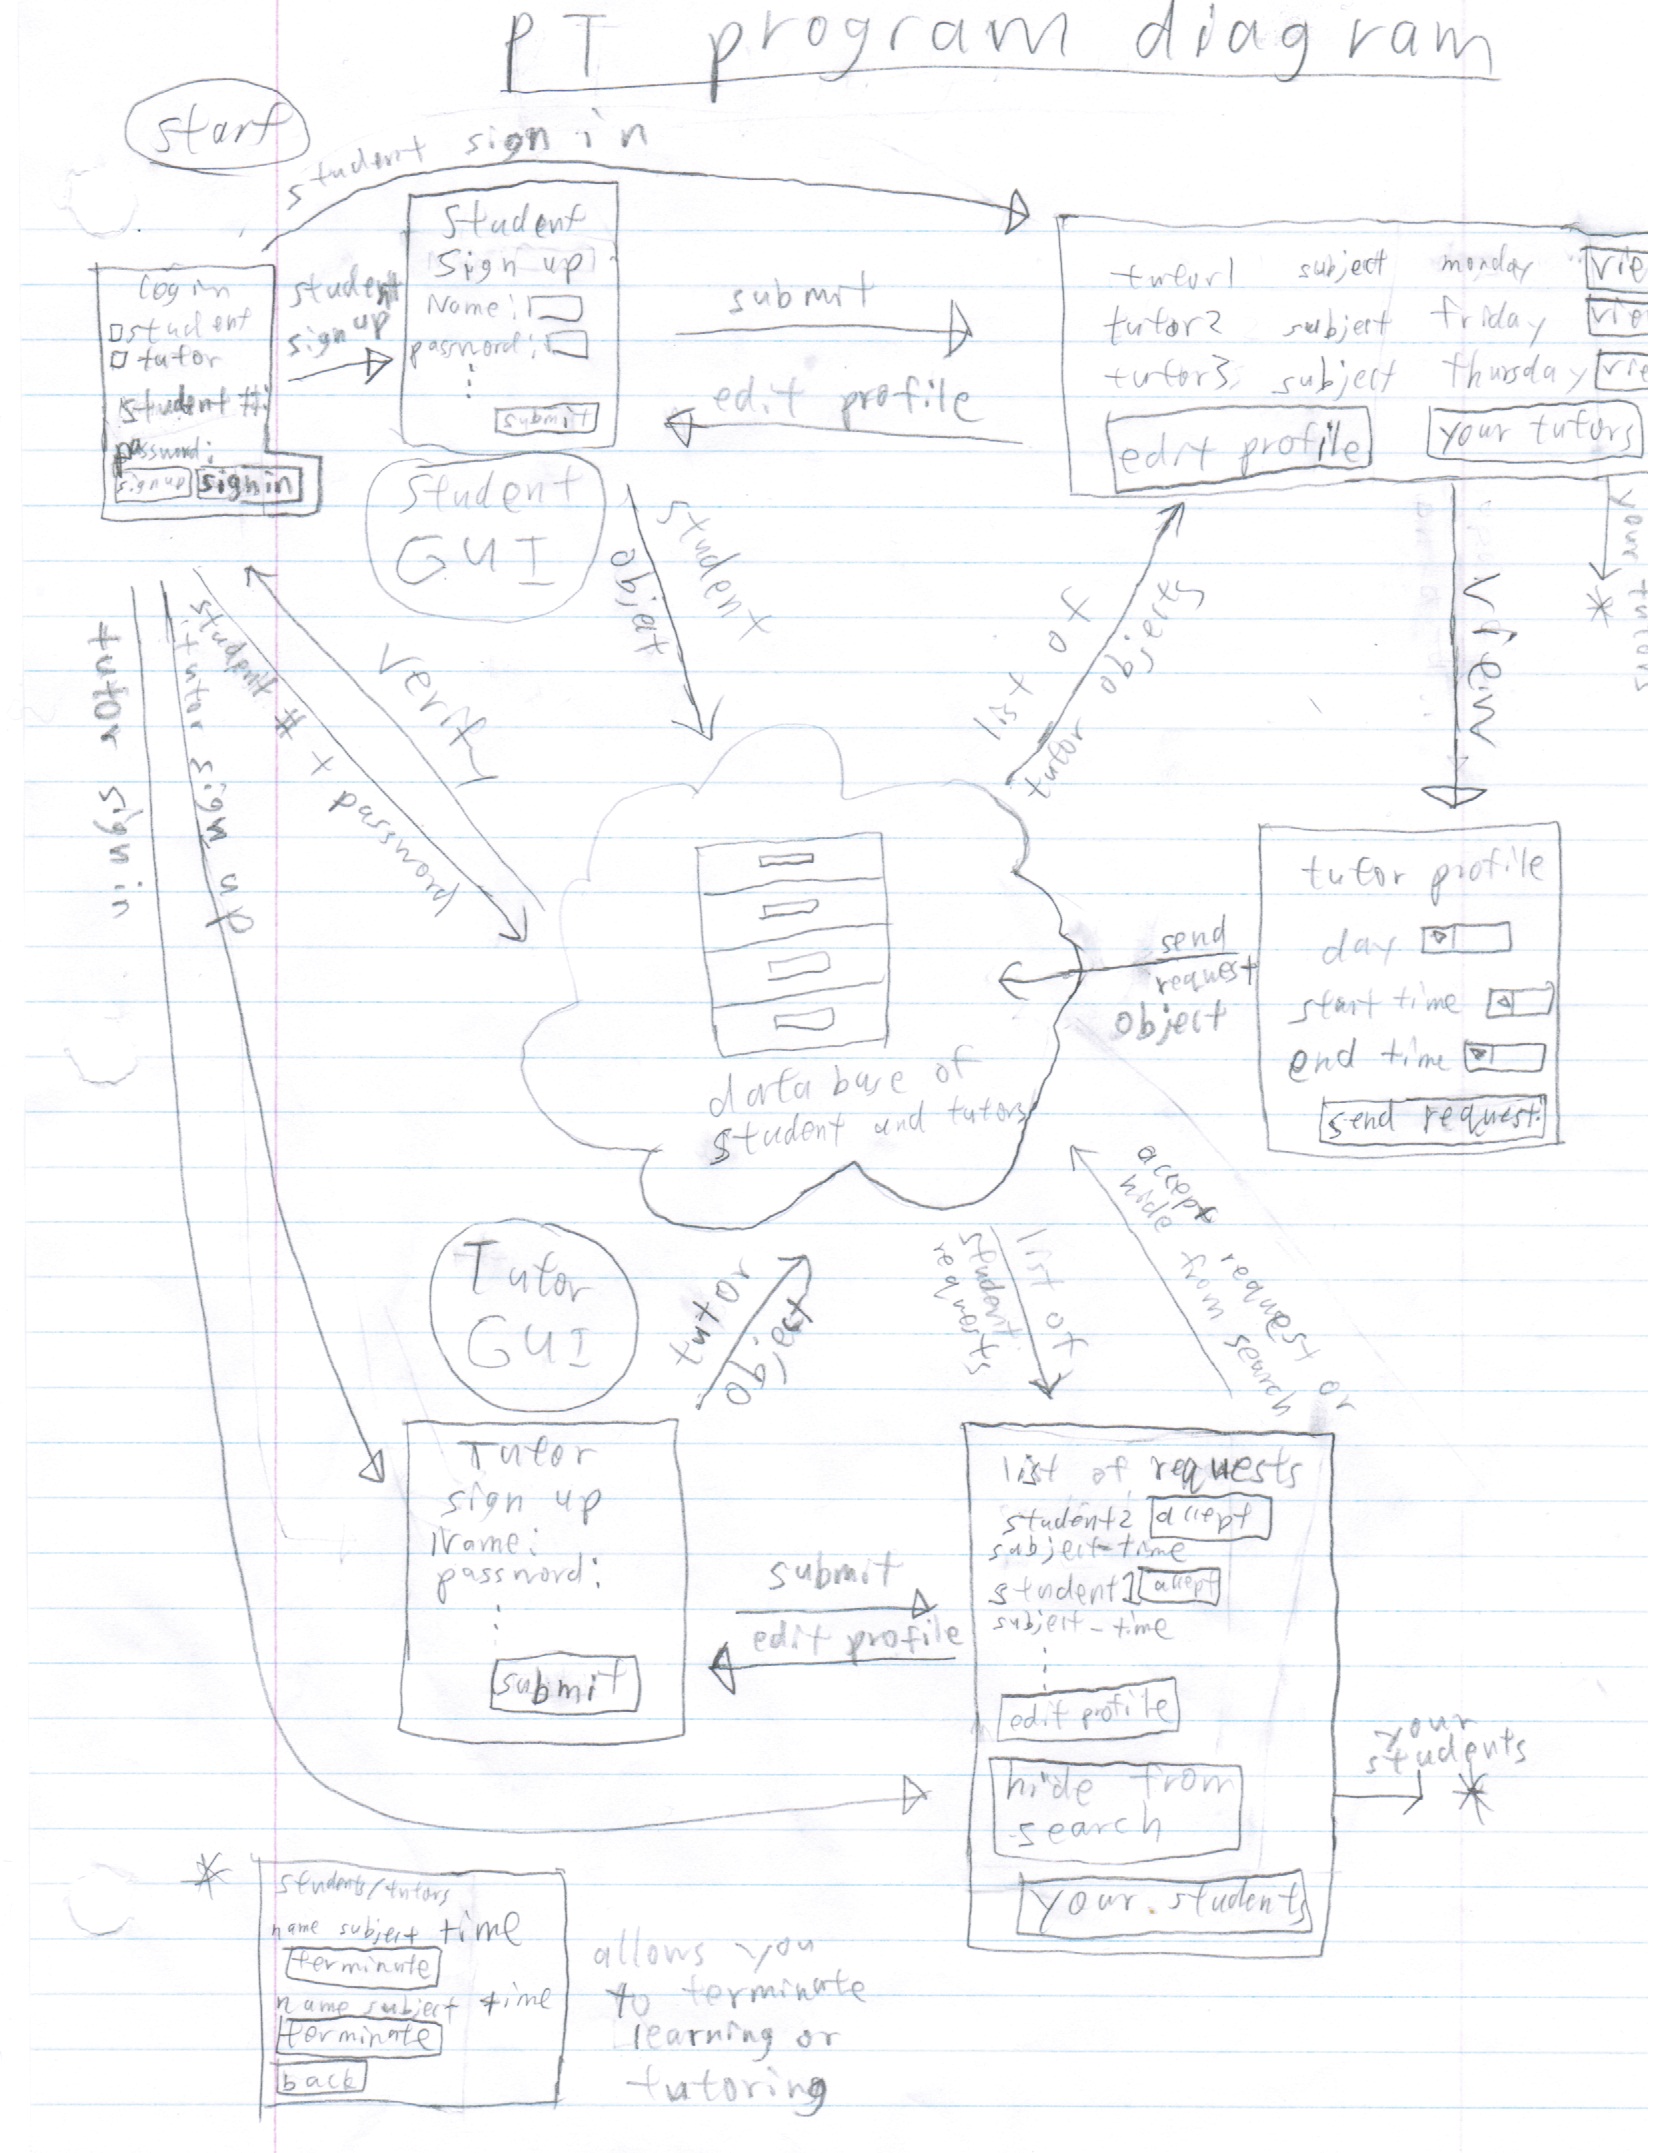 PT program diagram
start
student sign in
Login
student
tutor
student #:
password:
signup
signin
student
sign up
Student
Sign up
Name:
password:
submit
submit
edit profile
tutor1 subject monday vie
tutor2 subject friday vie
tutor3 subject thursday vie
edit profile
your tutors
Student
GUI
student
object
list of
tutor objects
view
your tutors
*
tutor sign in
tutor sign up
student # + password
verify
data base of
student and tutors
tutor profile
day
start time
end time
send request
send
request
object
accept request or
hide from search
list of
student
requests
Tutor
GUI
tutor
object
Tutor
sign up
Name:
password:
submit
submit
edit profile
list of requests
student2 accept
subject-time
student1 accept
subject-time
edit profile
hide from
search
your students
your
students
*
*
students/tutors
name subject time
terminate
name subject time
terminate
back
allows you
to terminate
learning or
tutoring